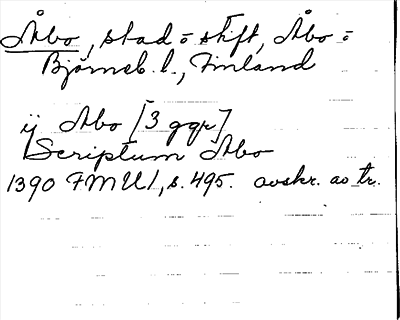 Åbo, stad o stift, Åbo o
Björneb. l., Finland
ij Abo [3 ggr]
Scriptum Abo
1390 FMU 1, s. 495. avskr. av tr.